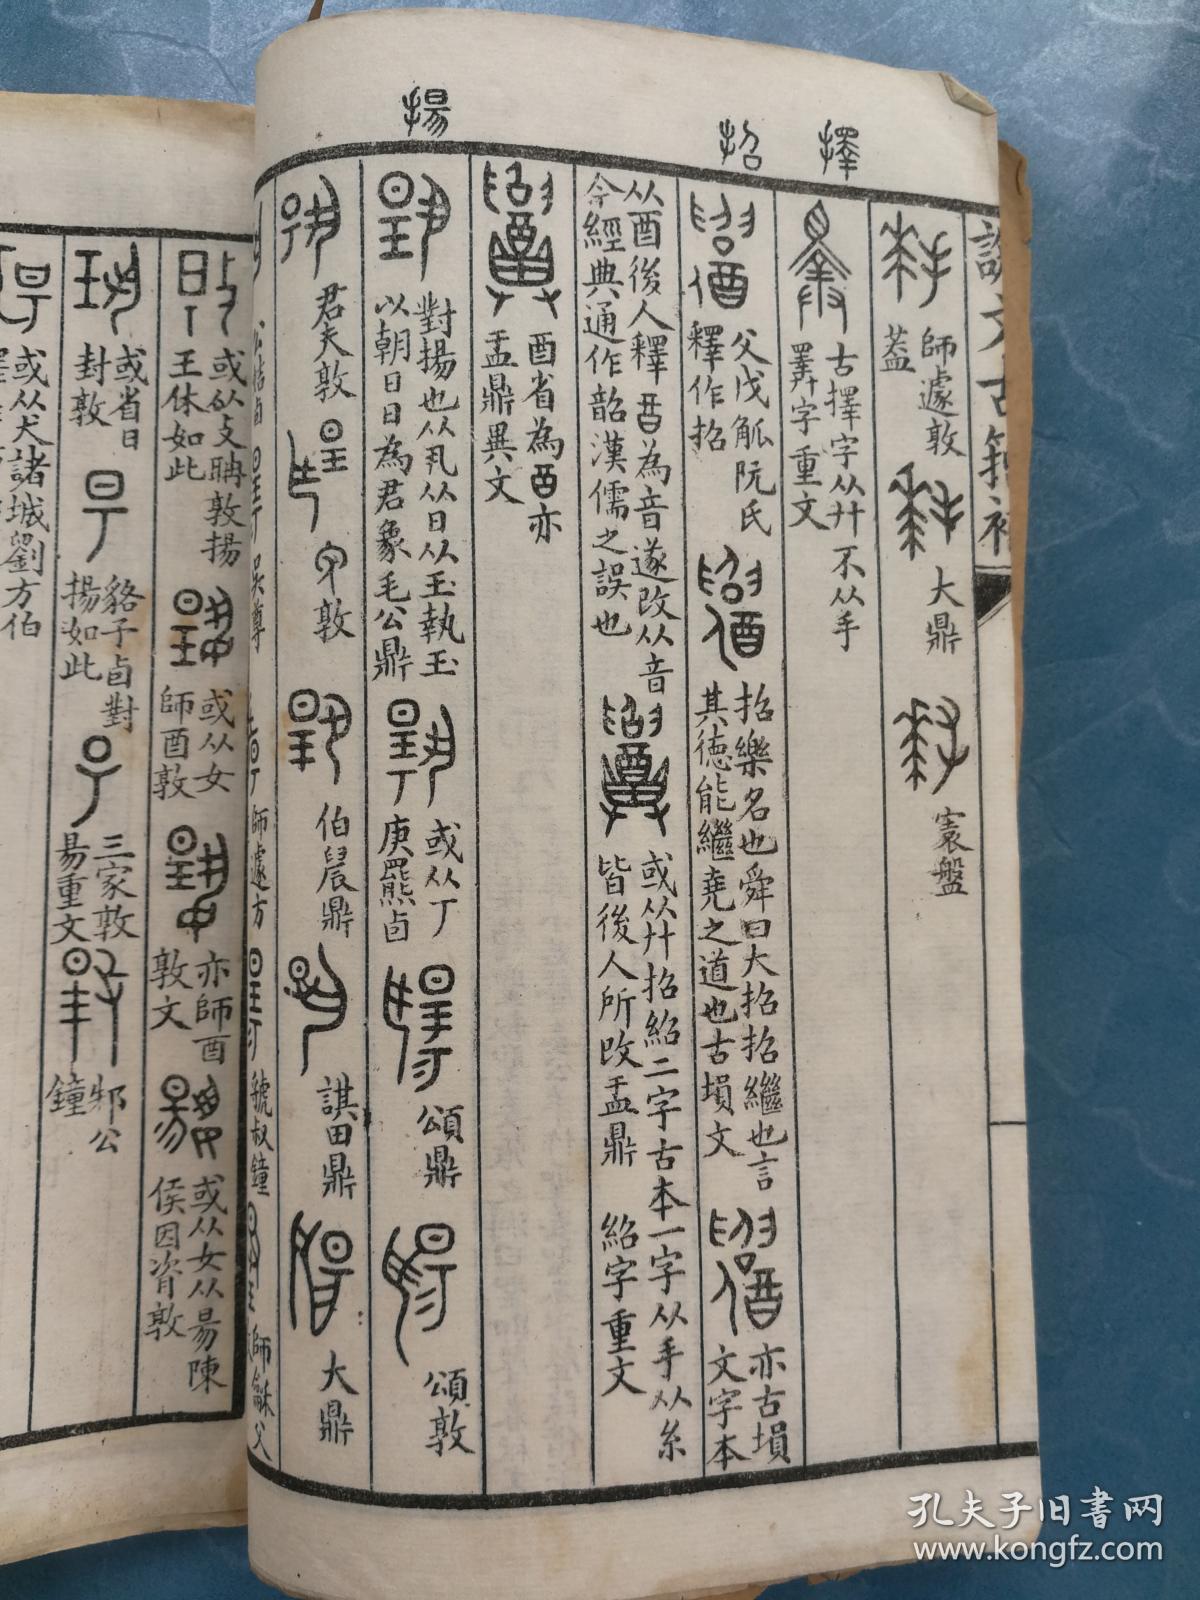 擇
招
揚
說文古籀補
師遽敦
蓋
大鼎
寰盤
古擇字从廾不从手
睪字重文
父戊觚阮氏
釋作招
招樂名也舜曰大招招繼也言
其德能繼堯之道也古塤文
亦古塤
文字本
从酉後人釋䣭為音遂改从音
今經典通作韶漢儒之誤也
或从廾招紹二字古本一字从手从糸
皆後人所改盂鼎
紹字重文
酉省為
亦
盂鼎異文
對揚也从丮从日从玉執玉
以朝日日為君象毛公鼎
或从丁
庚羆卣
頌鼎
頌敦
君夫敦
守敦
伯晨鼎
諆田鼎
大鼎
吳尊
師遽方
虢叔鐘
師龢父
或从攴聃敦揚
王休如此
或从女
師酉敦
亦師酉
敦文
或从女从昜陳
侯因資敦
或省日
封敦
貉子卣對
揚如此
三家敦
昜重文
邾公
鐘
或从犬諸城劉方伯
孔夫子旧书网
www.kongfz.com